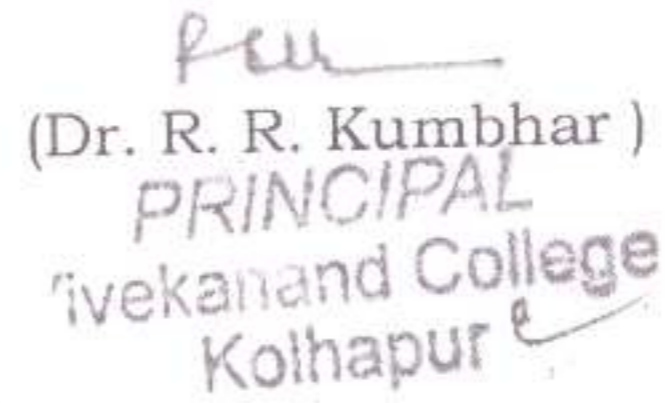 (Dr. R. R. Kumbhar )
PRINCIPAL
ivekanand College
Kolhapur